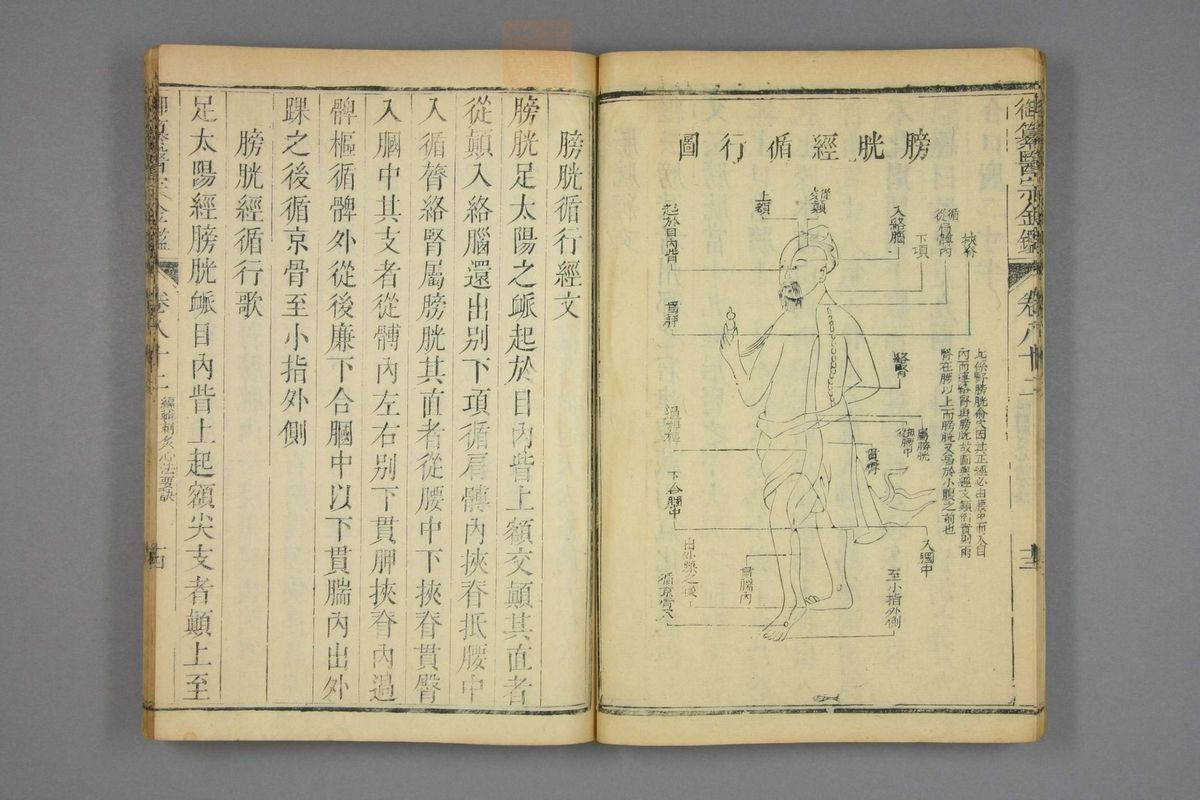 御纂醫宗金鑑
卷八十二
膀胱經循行圖
挾脊
循肩髆內
下項
入絡腦
從顛
上額
起於目內眥
絡腎
屬膀胱
貫臀
下合膕中
入膕中
貫腨內
由外踝之後
循京骨
至小指外側
膀胱循行經文
膀胱足太陽之脈起於目內眥上額交顛其直者
從顛入絡腦還出别下項循肩髆內挾脊抵腰中
入循膂絡腎屬膀胱其直者從腰中下挾脊貫臀
入膕中其支者從髆內左右别下貫胛挾脊內過
髀樞循髀外從後廉下合膕中以下貫腨內出外
踝之後循京骨至小指外側
膀胱經循行歌
足太陽經膀胱脈目內眥上起額尖支者顛上至
御纂醫宗金鑑
卷八十二
編輯刺灸心法要訣